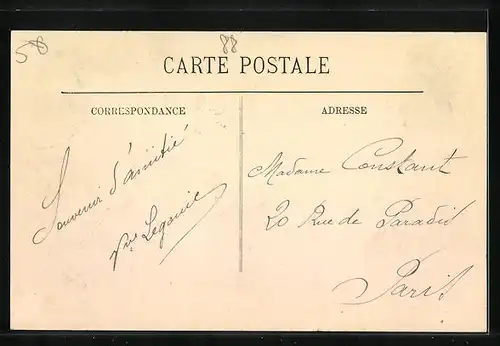 58
88
CARTE POSTALE
CORRESPONDANCE
ADRESSE
Souvenir d'amitié
Vve
Madame Constant
20 Rue de Paradis
Paris